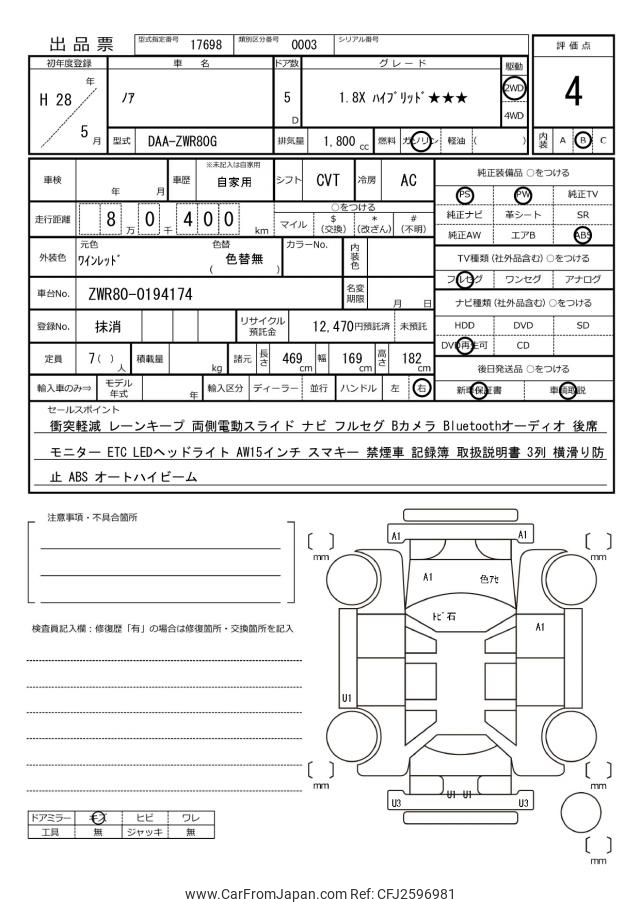 出品票 型式指定番号 17698 類別区分番号 0003 シリアル番号
評価点
4
内装 A B C
初年度登録 車名 ドア数 グレード 駆動
H 28 年 5 月
ﾉｱ
5 D
1.8X ﾊｲﾌﾞﾘｯﾄﾞ★★★
2WD
4WD
型式 DAA-ZWR80G 排気量 1,800 cc 燃料 ガソリン 軽油 ( )
車検 年 月 車歴 ※未記入は自家用 自家用 シフト CVT 冷房 AC
走行距離 8 万 0 千 4 0 0 km
○をつける
マイル $ (交換) * (改ざん) # (不明)
外装色 元色 ﾜｲﾝﾚｯﾄﾞ 色替 ( 色替無 ) カラーNo. 内装色
車台No. ZWR80-0194174 名変期限 月 日
登録No. 抹消 リサイクル預託金 12,470円預託済 未預託
定員 7 ( ) 人 積載量 kg 諸元 長さ 469 cm 幅 169 cm 高さ 182 cm
輸入車のみ⇒ モデル年式 年 輸入区分 ディーラー 並行 ハンドル 左 右
純正装備品 ○をつける
PS PW 純正TV
純正ナビ 革シート SR
純正AW エアB ABS
TV種類 (社外品含む) ○をつける
フルセグ ワンセグ アナログ
ナビ種類 (社外品含む) ○をつける
HDD DVD SD
DVD再生可 CD
後日発送品 ○をつける
新車保証書 車輌取説
セールスポイント
衝突軽減 レーンキープ 両側電動スライド ナビ フルセグ Bカメラ Bluetoothオーディオ 後席
モニター ETC LEDヘッドライト AW15インチ スマキー 禁煙車 記録簿 取扱説明書 3列 横滑り防
止 ABS オートハイビーム
注意事項・不具合箇所
検査員記入欄：修復歴「有」の場合は修復箇所・交換箇所を記入
ドアミラー キズ ヒビ ワレ
工具 無 ジャッキ 無
A1 A1
[ ] mm [ ] mm
A1 色ｱｾ
ﾄﾋﾞ石
A1
U1
[ ] mm [ ] mm
U3 U1 U1 U3
[ ] mm
www.CarFromJapan.com Ref: CFJ2596981